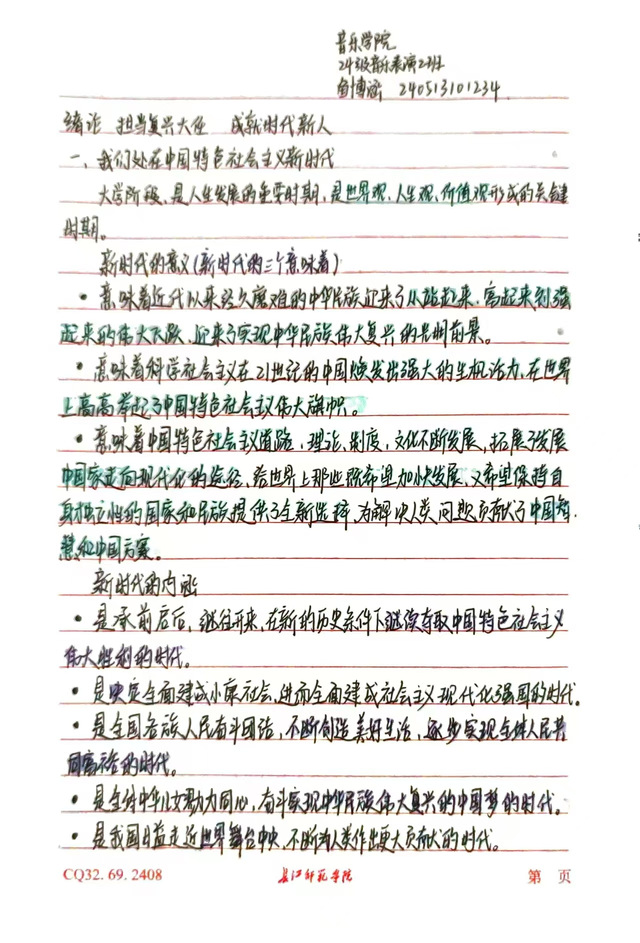 音乐学院
24级音乐表演2班
鱼博涵 240513101234
绪论 担当复兴大任 成就时代新人
一、我们处在中国特色社会主义新时代
大学阶段，是人生发展的重要时期，是世界观、人生观、价值观形成的关键
时期。
新时代的意义(新时代的三个意味着)
• 意味着近代以来经久磨难的中华民族迎来了从站起来、富起来到强
起来的伟大飞跃，迎来了实现中华民族伟大复兴的光明前景。
• 意味着科学社会主义在21世纪的中国焕发出强大的生机活力，在世界
上高高举起了中国特色社会主义伟大旗帜。
• 意味着中国特色社会主义道路、理论、制度、文化不断发展，拓展了发展
中国家走向现代化的途径，给世界上那些既希望加快发展、又希望保持自
身独立性的国家和民族提供了全新选择，为解决人类问题贡献了中国智
慧和中国方案。
新时代的内涵
• 是承前启后、继往开来，在新的历史条件下继续夺取中国特色社会主义
伟大胜利的时代。
• 是决定全面建成小康社会、进而全面建成社会主义现代化强国的时代。
• 是全国各族人民奋斗团结，不断创造美好生活，逐步实现全体人民共
同富裕的时代。
• 是全体中华儿女勠力同心，奋斗实现中华民族伟大复兴的中国梦的时代。
• 是我国日益走近世界舞台中央，不断为人类作出更大贡献的时代。
CQ32.69.2408 长江师范学院 第 页